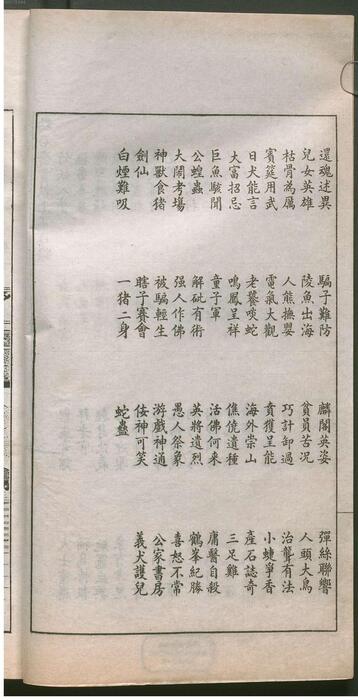 還魂述異 騙子難防 麟閣英姿 彈絲聯響
兒女英雄 陵魚出海 貧員苦況 人頭大鳥
枯骨為厲 人熊撫嬰 巧計卸過 治聾有法
賓筵用武 電氣大觀 賁獲呈能 小婢寧香
日犬能言 老饕啖蛇 海外崇山 產石誌奇
大富招忌 鳴鳳呈祥 僬僥遺種 三足雞
巨魚駭聞 童子軍 活佛何来 庸醫自殺
公蝗蟲 解砒有術 英將遺烈 鶴峯紀勝
大鬧考場 强人作佛 愚人祭象 喜怒不常
神獸食猪 被騙輕生 游戲神通 公家書房
劍仙 瞎子賽會 佞神可笑 義犬護兒
白煙難吸 一猪二身 蛇蠱